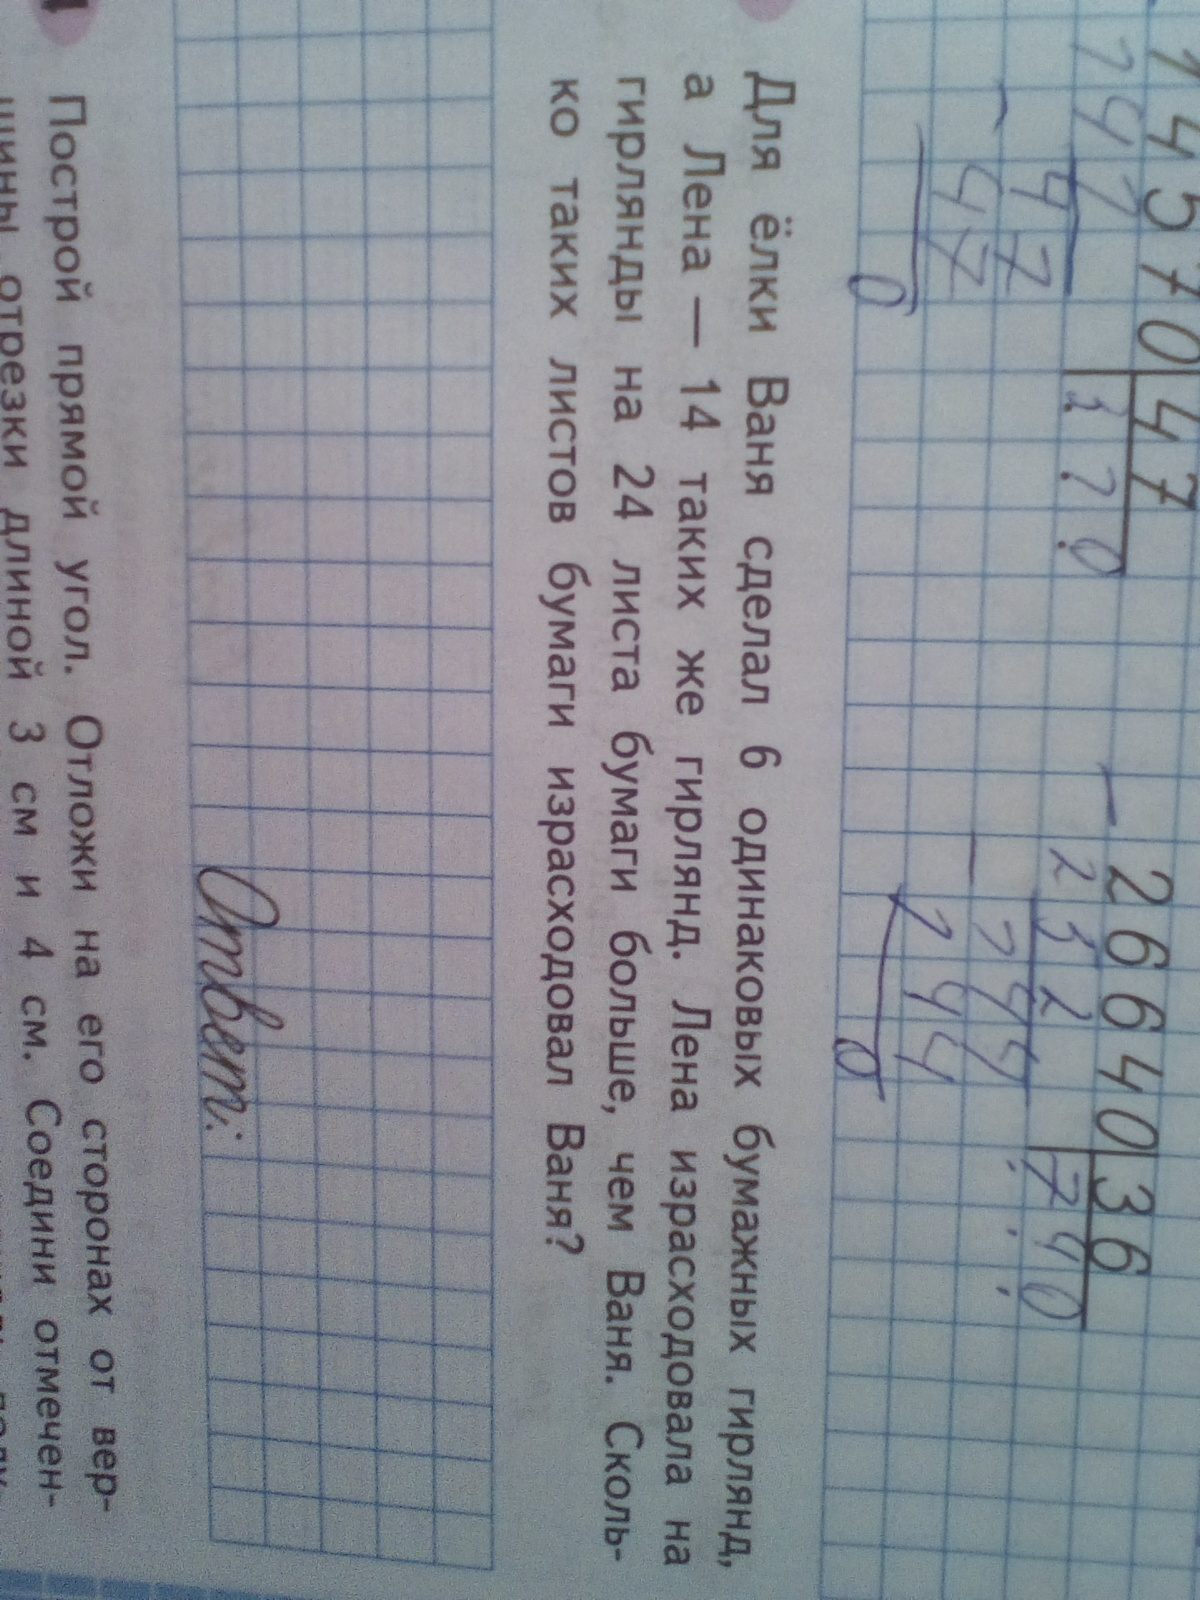 14570 47
141 310
47
47
0
26640 36
252 740
144
144
0
Для ёлки Ваня сделал 6 одинаковых бумажных гирлянд,
а Лена — 14 таких же гирлянд. Лена израсходовала на
гирлянды на 24 листа бумаги больше, чем Ваня. Сколь-
ко таких листов бумаги израсходовал Ваня?
Ответ:
Построй прямой угол. Отложи на его сторонах от вер-
шины отрезки длиной 3 см и 4 см. Соедини отмечен-